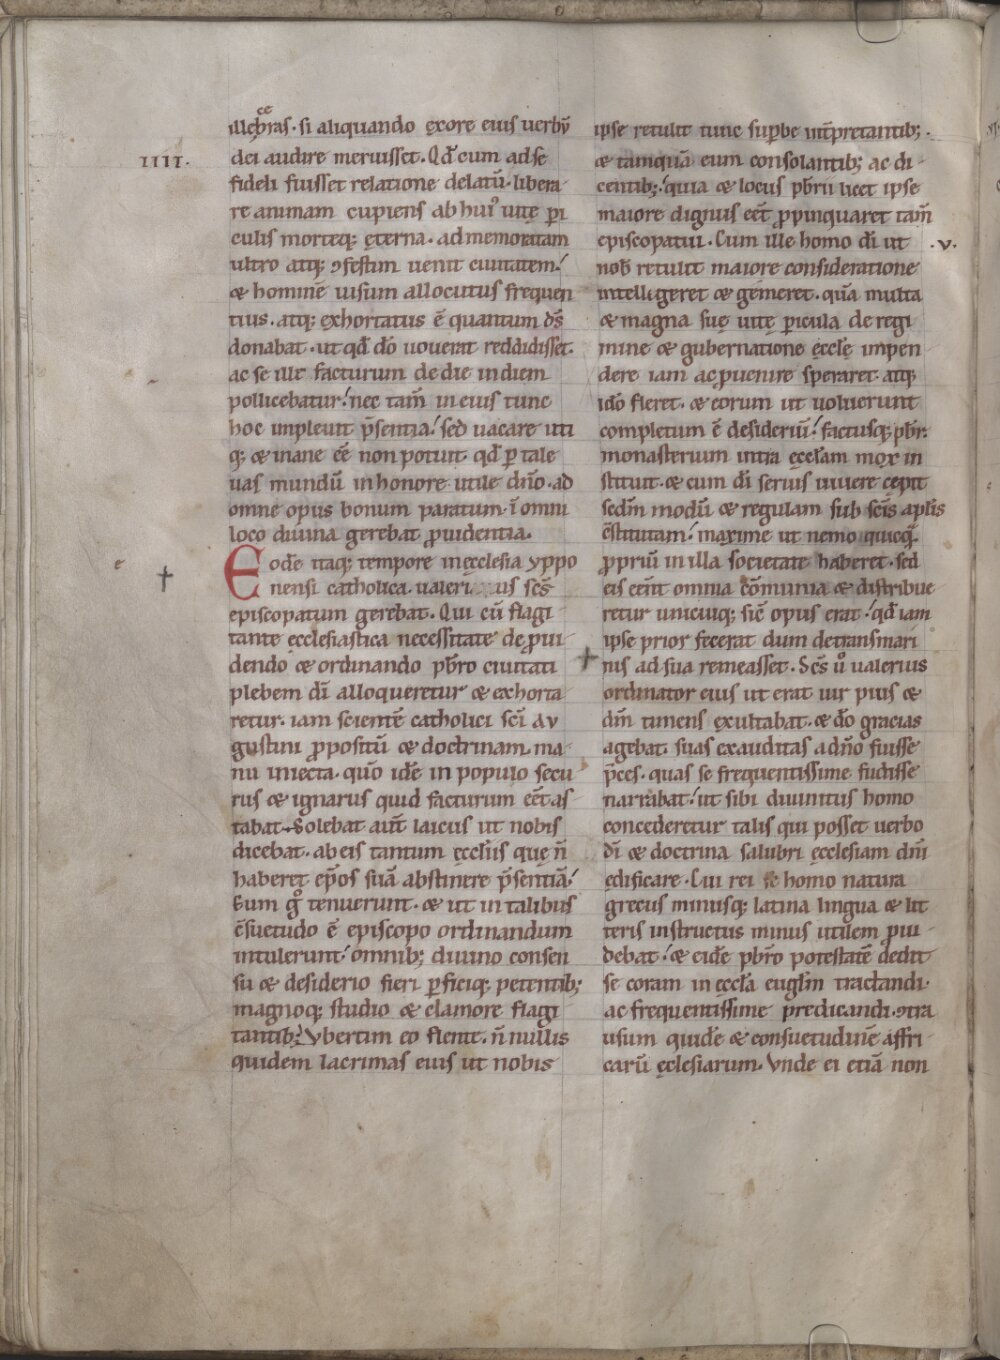 illecebras. si aliquando exore eius uerbū
IIII.
dei audire meruisset. Qd̄ cum adse
fideli fuisset relatione delatū. libera-
re animam cupiens ab huiꝰ uitę ꝑi
culis morteqꝫ ęterna. ad memoratam
ultro atqꝫ ꝯfestim uenit ciuitatem.
& hominē uisum allocutus frequen
tius. atqꝫ exhortatus ē quantum dn̄s
donabat. ut qd̄ dō uouerat reddidisset.
ac se ille facturum de die in diem
pollicebatur. nec tam̄ in eius tunc
hoc impleuit p̄sentia. sed uacare uti
qꝫ & inane eē non potuit. qd̄ ꝑ tale
uas mundū in honore utile dn̄o. ad
omne opus bonum paratum. ī omni
loco diuina gerebat ꝓuidentia.
Eodē itaqꝫ tempore in ecclesia yppo
nensi catholica. ualerius sc̄s
episcopatum gerebat. Qui cū flagi
tante ecclesiastica necessitate de ꝓui-
dendo & ordinando pb̄ro ciuitati
plebem dī alloqueretur & exhorta-
retur. iam scientē catholici sc̄i au
gustini ꝓpositū & doctrinam. ma-
nu iniecta. quō idē in populo secu
rus & ignarus quid facturum eēt as-
tabat. Solebat aūt laicus ut nobis
dicebat. ab eis tantum ęccl̄iis quę n̄
haberet ep̄os suā abstinere p̄sentiā.
Eum gͦ tenuerunt. & ut in talibus
c̄suetudo ē episcopo ordinandum
intulerunt. omnibꝫ diuino consen
sū & desiderio fieri ꝑficiqꝫ petentibꝫ
magnoqꝫ studio & clamore flagi
tantibꝫ. Vbertim eo flente. n̄ nullis
quidem lacrimas eius ut nobis
ipse retulit tunc suꝑbe int̄pretantibꝫ.
& tamquā eum consolantibꝫ ac di-
centibꝫ. quia & locus pb̄rii licet ipse
maiore dignus eēt ꝓpinquaret tam̄
episcopatui. Cum ille homo dī ut
.v.
nob̄ retulit maiore consideratione
intelligeret & gemeret. quā multa
& magna suę uitę ꝑicula de regi
mine & gubernatione ęccl̄ę impen-
dere iam ac ꝓuenire speraret. atqꝫ
idō fleret. & eorum ut uoluerunt
completum ē desideriū. factusqꝫ pb̄r.
monasterium intra ęccl̄am mox in
stituit. & cum dī seruis uiuere cepit
sed̄m modū & regulam sub sc̄is apl̄is
c̄stitutam. maxime ut nemo quicqꝫ
ꝓpriū in illa societate haberet. sed
eis eēnt omnia cōmunia & distribue-
retur unicuiqꝫ sic̄ opus erat. qd̄ iam
ipse prior fecerat dum detransmari
nis ad sua remeasset. Sc̄s ū ualerius
ordinator eius ut erat uir pius &
dm̄ timens exultabat. & dō gracias
agebat. suas exauditas adn̄o fuisse
p̄ces. quas se frequentissime fudisse
narrabat. ut sibi diuinitus homo
concederetur talis qui posset uerbo
dī & doctrina salubri ęcclesiam dn̄i
ędificare. Cui rei se homo natura
grecus minusqꝫ latina lingua & lit
teris instructus minus utilem ꝓui-
debat. & eidē pb̄ro potestatē dedit
se coram in eccl̄a eugl̄m tractandi.
ac frequentissime predicandi. ꝯtra
usum quidē & consuetudinē affri-
carū ęclesiarum. Vnde ei etiā non